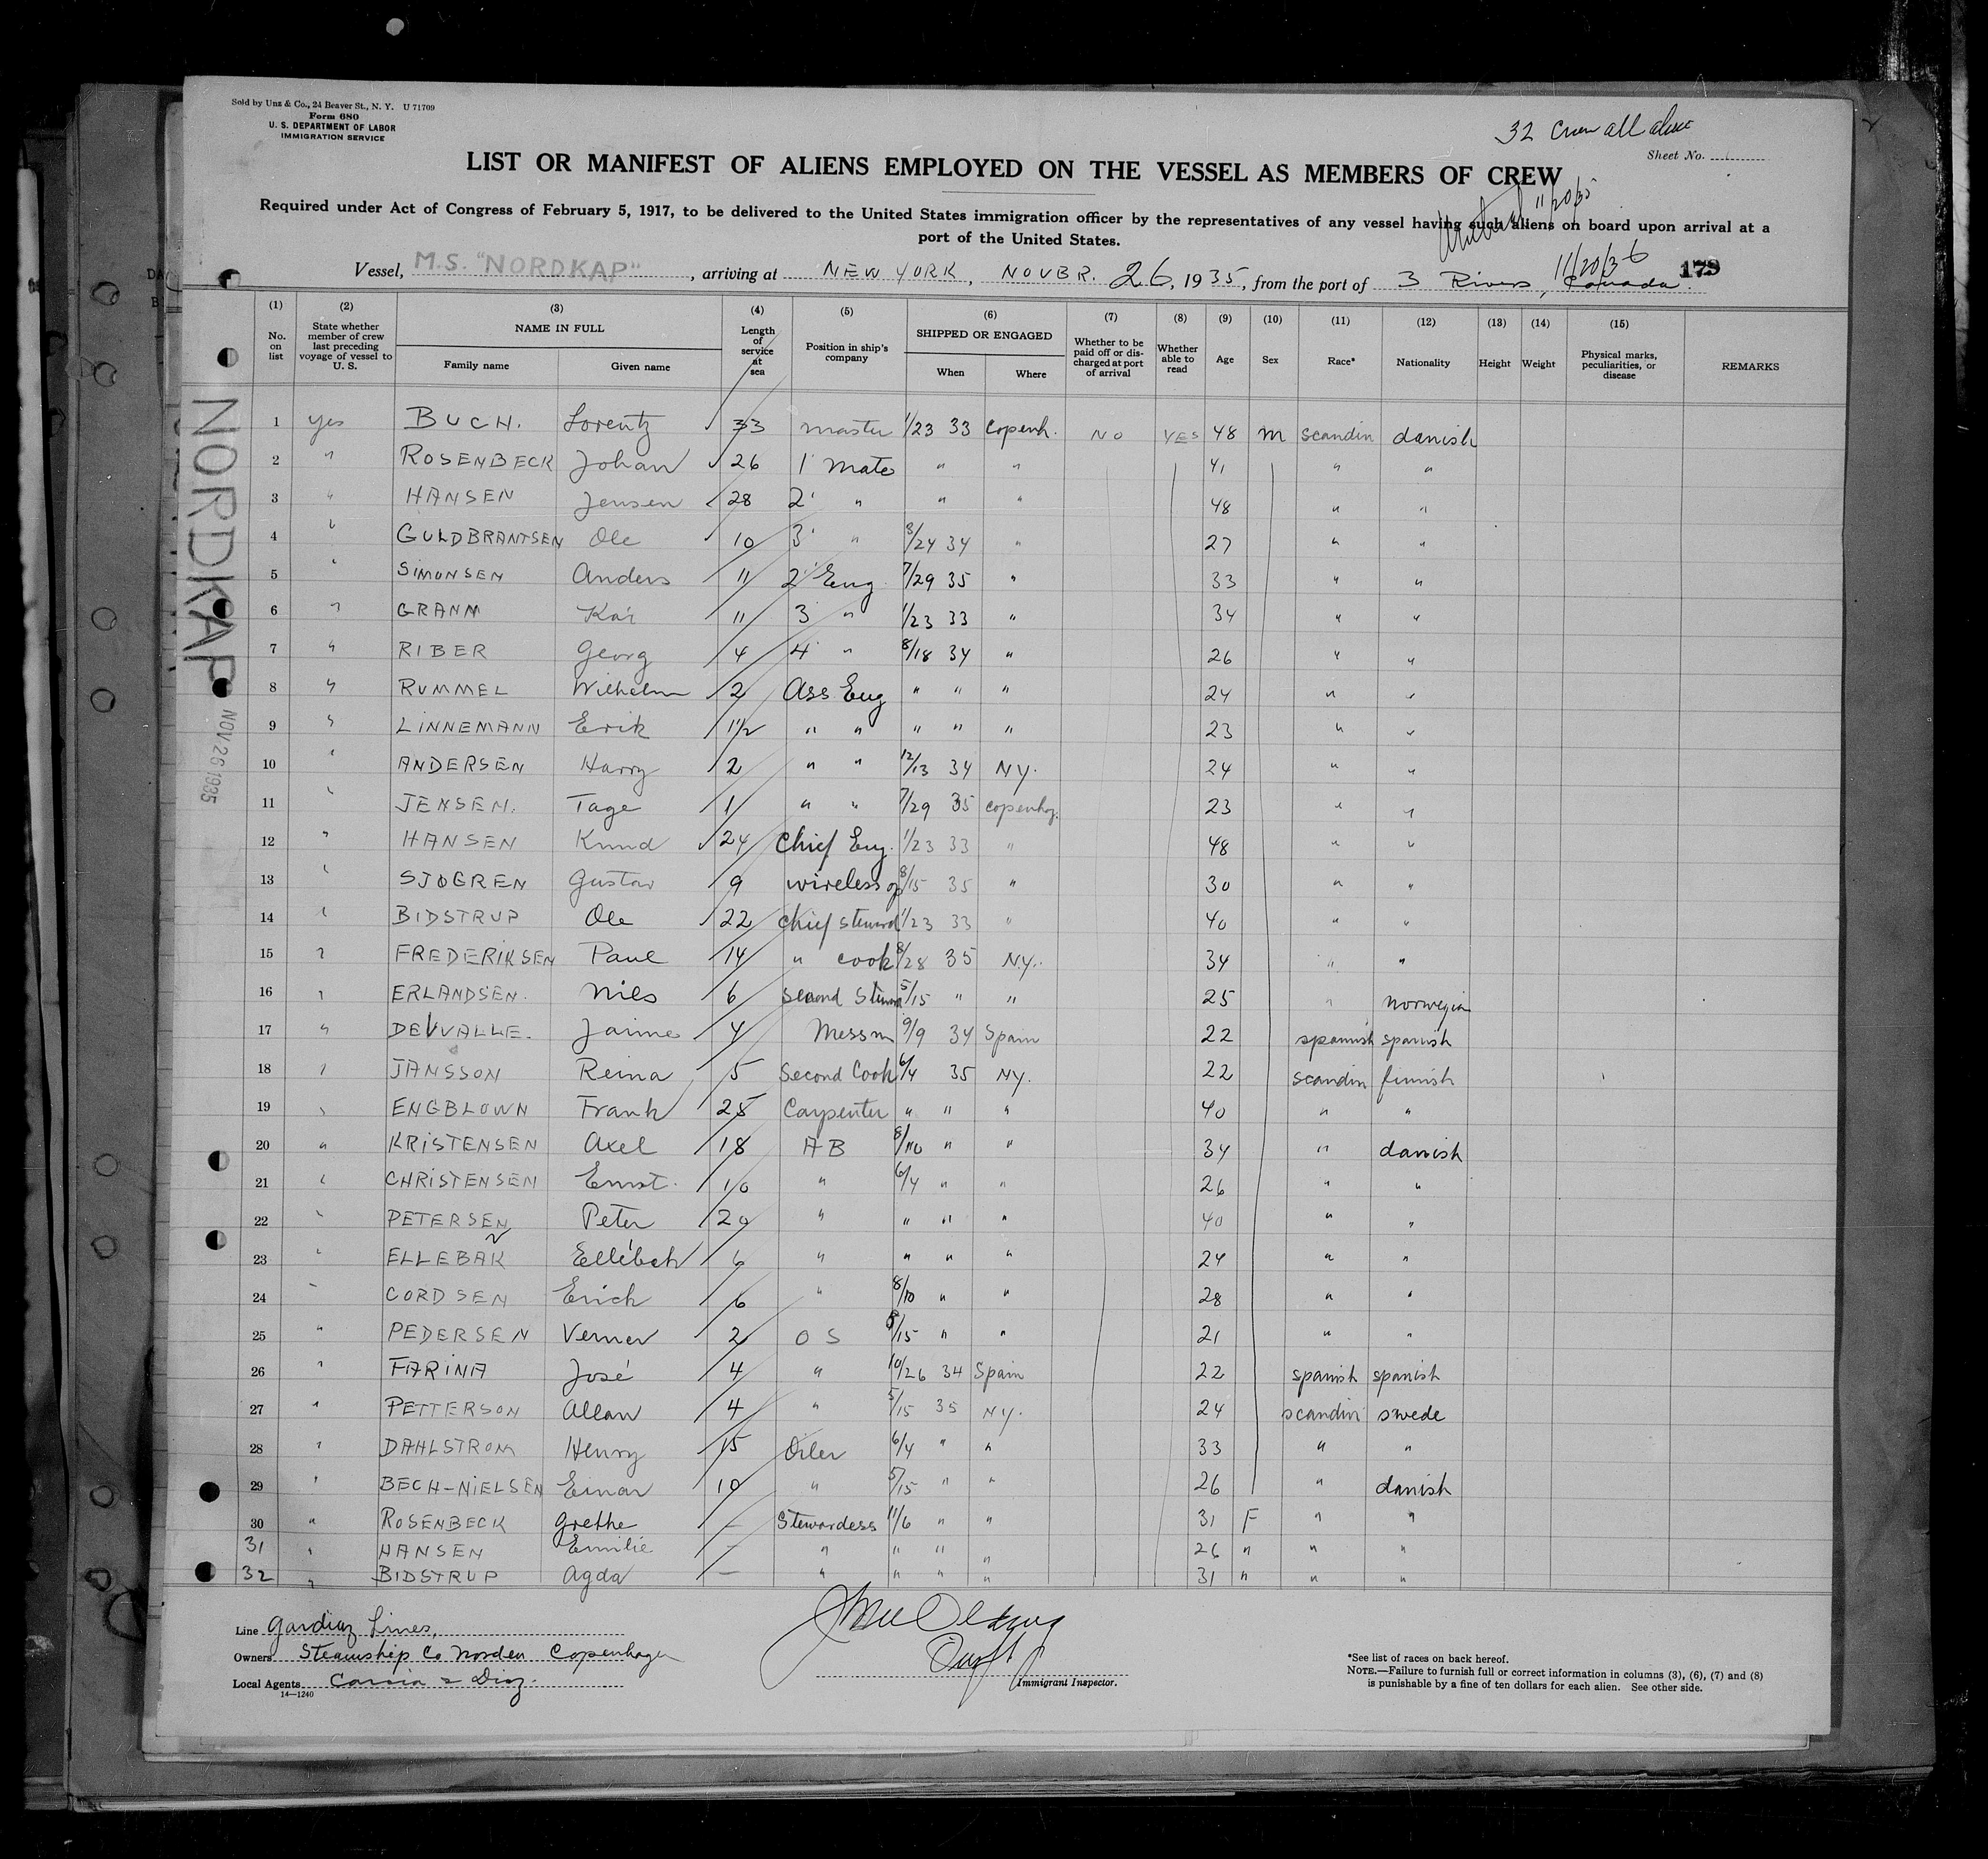 Sold by Unz & Co., 24 Beaver St., N. Y. U 71709
Form 680
U. S. DEPARTMENT OF LABOR
IMMIGRATION SERVICE
32 Crew all
Sheet No.
LIST OR MANIFEST OF ALIENS EMPLOYED ON THE VESSEL AS MEMBERS OF CREW
11/20/35
Required under Act of Congress of February 5, 1917, to be delivered to the United States immigration officer by the representatives of any vessel having such aliens on board upon arrival at a
port of the United States.
11/20/36
Vessel, M.S. "NORDKAP", arriving at NEW YORK, NOVBR. 26, 1935, from the port of 3 Rivers, Canada. 179
(1) No. on list (2) State whether member of crew last preceding voyage of vessel to U. S. (3) NAME IN FULL Family name Given name (4) Length of service at sea (5) Position in ship's company (6) SHIPPED OR ENGAGED When Where (7) Whether to be paid off or discharged at port of arrival (8) Whether able to read (9) Age (10) Sex (11) Race* (12) Nationality (13) Height (14) Weight (15) Physical marks, peculiarities, or disease REMARKS
NORDKAP
NOV 26 1935
1 yes BUCH. Lorentz 33 master 1/23 33 Copenh. NO YES 48 m scandin danish
2 " ROSENBECK Johan 26 1' mate " " 41 " "
3 " HANSEN Jensen 28 2' " " " 48 " "
4 " GULDBRANTSEN Ole 10 3' " 3/24 34 " 27 " "
5 " SIMONSEN Anders 11 2' Eng 7/29 35 " 33 " "
6 " GRANM Kai 11 3 " 1/23 33 " 34 " "
7 " RIBER Georg 4 4' " 8/18 34 " 26 " "
8 " RUMMEL Wilhelm 2 Ass Eng " " " 24 " "
9 " LINNEMANN Erik 1 1/2 " " " " " 23 " "
10 " ANDERSEN Harry 2 " " 12/13 34 NY. 24 " "
11 " JENSEN. Tage 1 " " 7/29 35 copenhg. 23 " "
12 " HANSEN Knud 24 Chief Eng. 1/23 33 " 48 " "
13 " SJOGREN Gustav 9 wireless op 8/15 35 " 30 " "
14 " BIDSTRUP Ole 22 Chief steward 1/23 33 " 40 " "
15 " FREDERIKSEN Paul 14 " cook 8/28 35 N.Y. 34 " "
16 " ERLANDSEN. Niels 6 second Steward 5/15 " " 25 " norwegian
17 " DEVVALLE. Jaime 4 Messm 9/9 34 Spain 22 spanish spanish
18 " JANSSON Reina 5 Second Cook 6/4 35 NY. 22 scandin finnish
19 " ENGBLOWN Frank 25 Carpenter " " " 40 " "
20 " KRISTENSEN Axel 18 AB 8/10 " " 34 " danish
21 " CHRISTENSEN Ernst. 10 " 6/4 " " 26 " "
22 " PETERSEN Peter 20 " " " " 40 " "
23 " ELLEBAK Ellebek 6 " " " " 24 " "
24 " CORDSEN Erich 6 " 8/10 " " 28 " "
25 " PEDERSEN Verner 2 O S 8/15 " " 21 " "
26 " FARINA José 4 " 10/26 34 Spain 22 spanish spanish
27 " PETTERSON Allan 4 " 5/15 35 NY. 24 scandin swede
28 " DAHLSTROM Henry 15 Oiler 6/4 " " 33 " "
29 " BECH-NIELSEN Einar 10 " 5/15 " " 26 " danish
30 " ROSENBECK Grethe — Stewardess 11/6 " " 31 F " "
31 " HANSEN Emilie — " " " " 26 " " "
32 " BIDSTRUP Agda — " " " " 31 " " "
Line Gardiaz Lines,
Owners Steamship Co Norden Copenhagen
Local Agents Garcia & Diaz.
14—1240
Immigrant Inspector.
*See list of races on back hereof.
NOTE.—Failure to furnish full or correct information in columns (3), (6), (7) and (8)
is punishable by a fine of ten dollars for each alien. See other side.